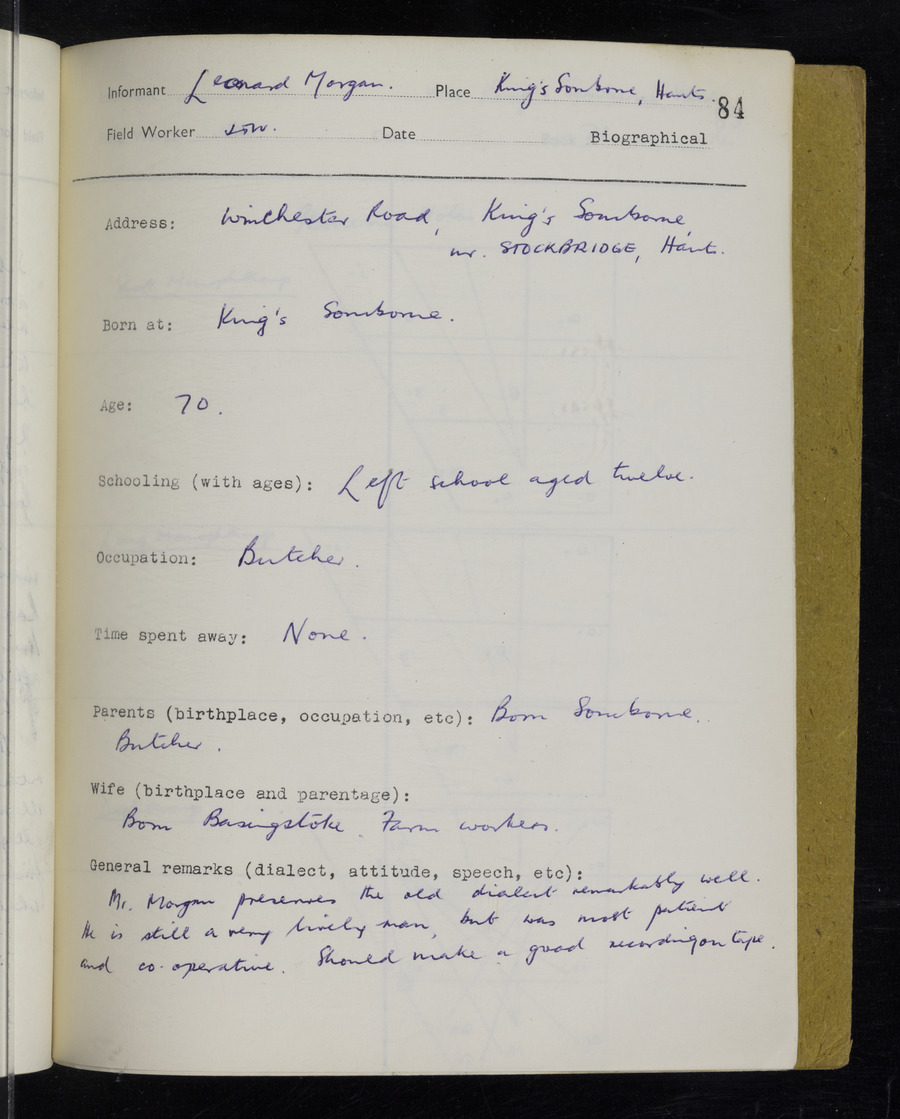 Informant Leonard Morgan. Place King's Somborne, Hants. 84
Field Worker Date Biographical
Address: Winchester Road, King's Somborne,
nr. STOCKBRIDGE, Hants.
Born at: King's Somborne.
Age: 70.
Schooling (with ages): Left school aged twelve.
Occupation: Butcher.
Time spent away: None.
Parents (birthplace, occupation, etc): Born Somborne.
Butcher.
Wife (birthplace and parentage):
Born Basingstoke. Farm workers.
General remarks (dialect, attitude, speech, etc):
Mr. Morgan preserves the old dialect remarkably well.
He is still a very lively man, but was most patient
and co-operative. Should make a good recording on tape.